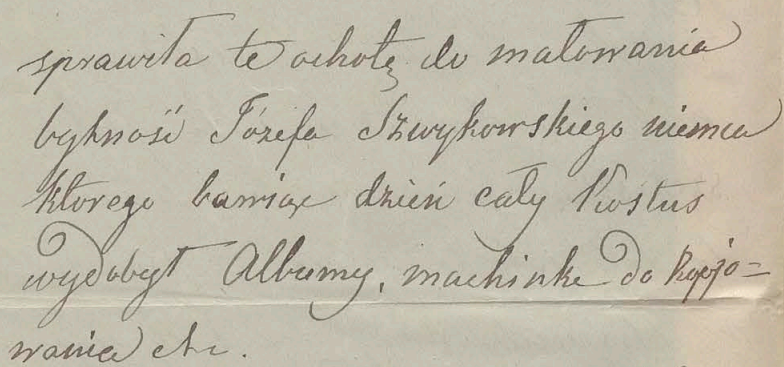 sprawiła te ochotę do malowania
bytność Józefa Szwykowskiego niemca
którego bawiąc dzień cały Kostuś
wydobył Albumy, machinkę do kopjo=
wania etc.